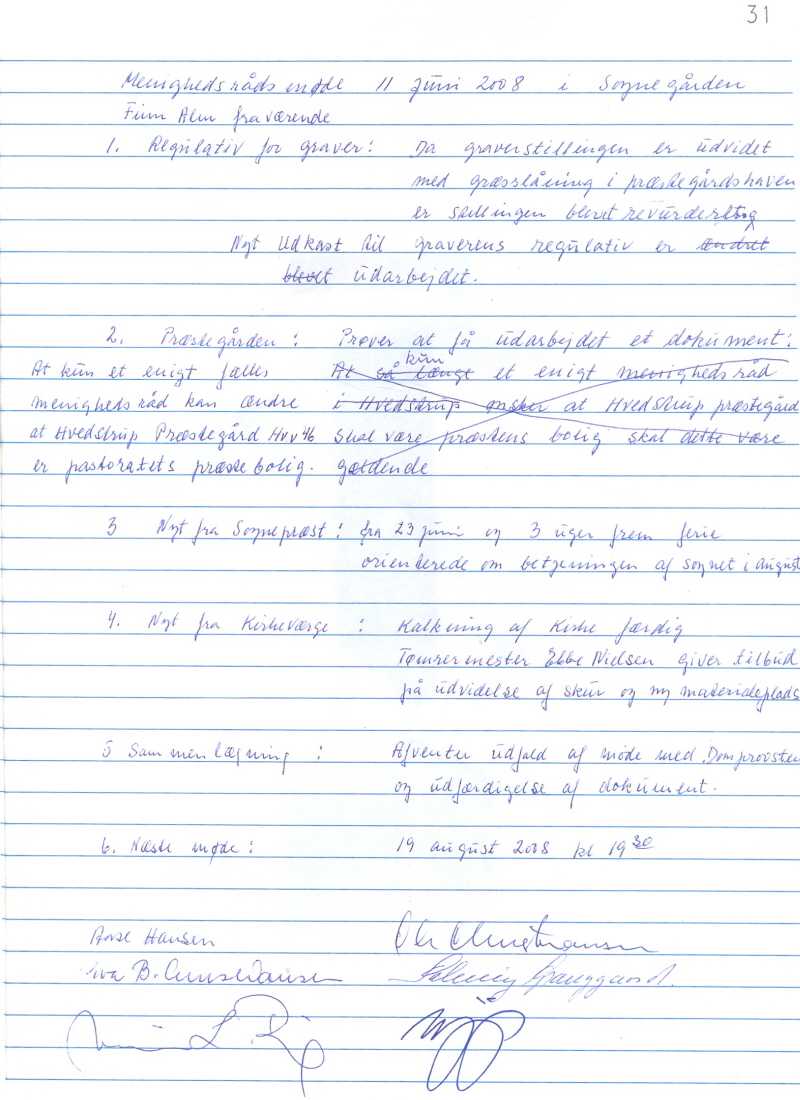 31
Menighedsråds møde 11 juni 2008 i Sognegården
Finn Alm fraværende
1. Regulativ for graver: Da graverstillingen er udvidet
med græsslåning i præstegårdshaven
er stillingen blevet revurderet og
Nyt udkast til graverens regulativ er ændret
blevet udarbejdet.
2. Præstegården: Prøver at få udarbejdet et dokument:
At kun et enigt fælles At så længe kun et enigt menighedsråd
menighedsråd kan ændre i Hvedstrup ønsker at Hvedstrup præstegård
at Hvedstrup Præstegård Hvv 46 skal være præstens bolig skal dette være
er pastoratets præstebolig. gældende
3 Nyt fra Sognepræst: fra 23 juni og 3 uger frem ferie
orienterede om betjeningen af sognet i august
4. Nyt fra Kirkeværge: Kalkning af Kirke færdig
Tømrermester Ebbe Nielsen giver tilbud
på udvidelse af skur og ny materialeplads
5 Sammenlægning: Afventer udfald af møde med Domprovsten
og udfærdigelse af dokument.
6. Næste møde: 19 august 2008 kl 19 30
Hansen
B.